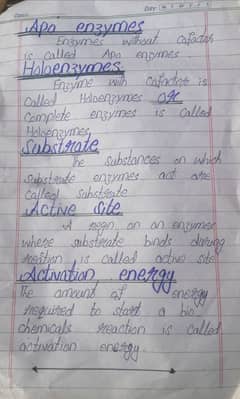 Day
Apo enzymes
Enzymes without cofactor
is called Apo enzymes
Holoenzymes
Enzyme with Cofactor is
called Holoenzymes OR
complete enzymes is called
Holoenzymes
Substrate
The Substances on which
substrate enzymes act are
called substrate
Active site
A region on an enzymes
where substrate binds during
reaction is called active site
Activation energy
The amount of energy
required to start a bio
chemicals reaction is called
activation energy.